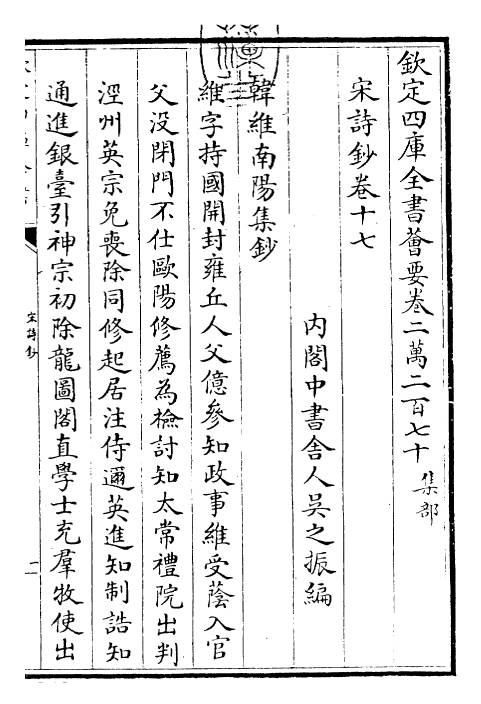 欽定四庫全書薈要卷二萬二百七十 集部
宋詩鈔卷十七
內閣中書舍人吳之振編
韓維南陽集鈔
維字持國開封雍丘人父億參知政事維受蔭入官
父沒閉門不仕歐陽修薦為檢討知太常禮院出判
涇州英宗免喪除同修起居注侍邇英進知制誥知
通進銀臺引神宗初除龍圖閣直學士充羣牧使出
宋詩鈔